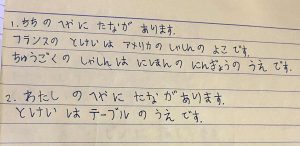 1. ちちの へやに たなが あります.
フランスの とけいは アメリカの しゃしんの よこ です.
ちゅうごくの しゃしんは にほんの にんぎょうの うえ です.
2. わたし の へやに たながあります.
とけい は テーブル の うえ です.